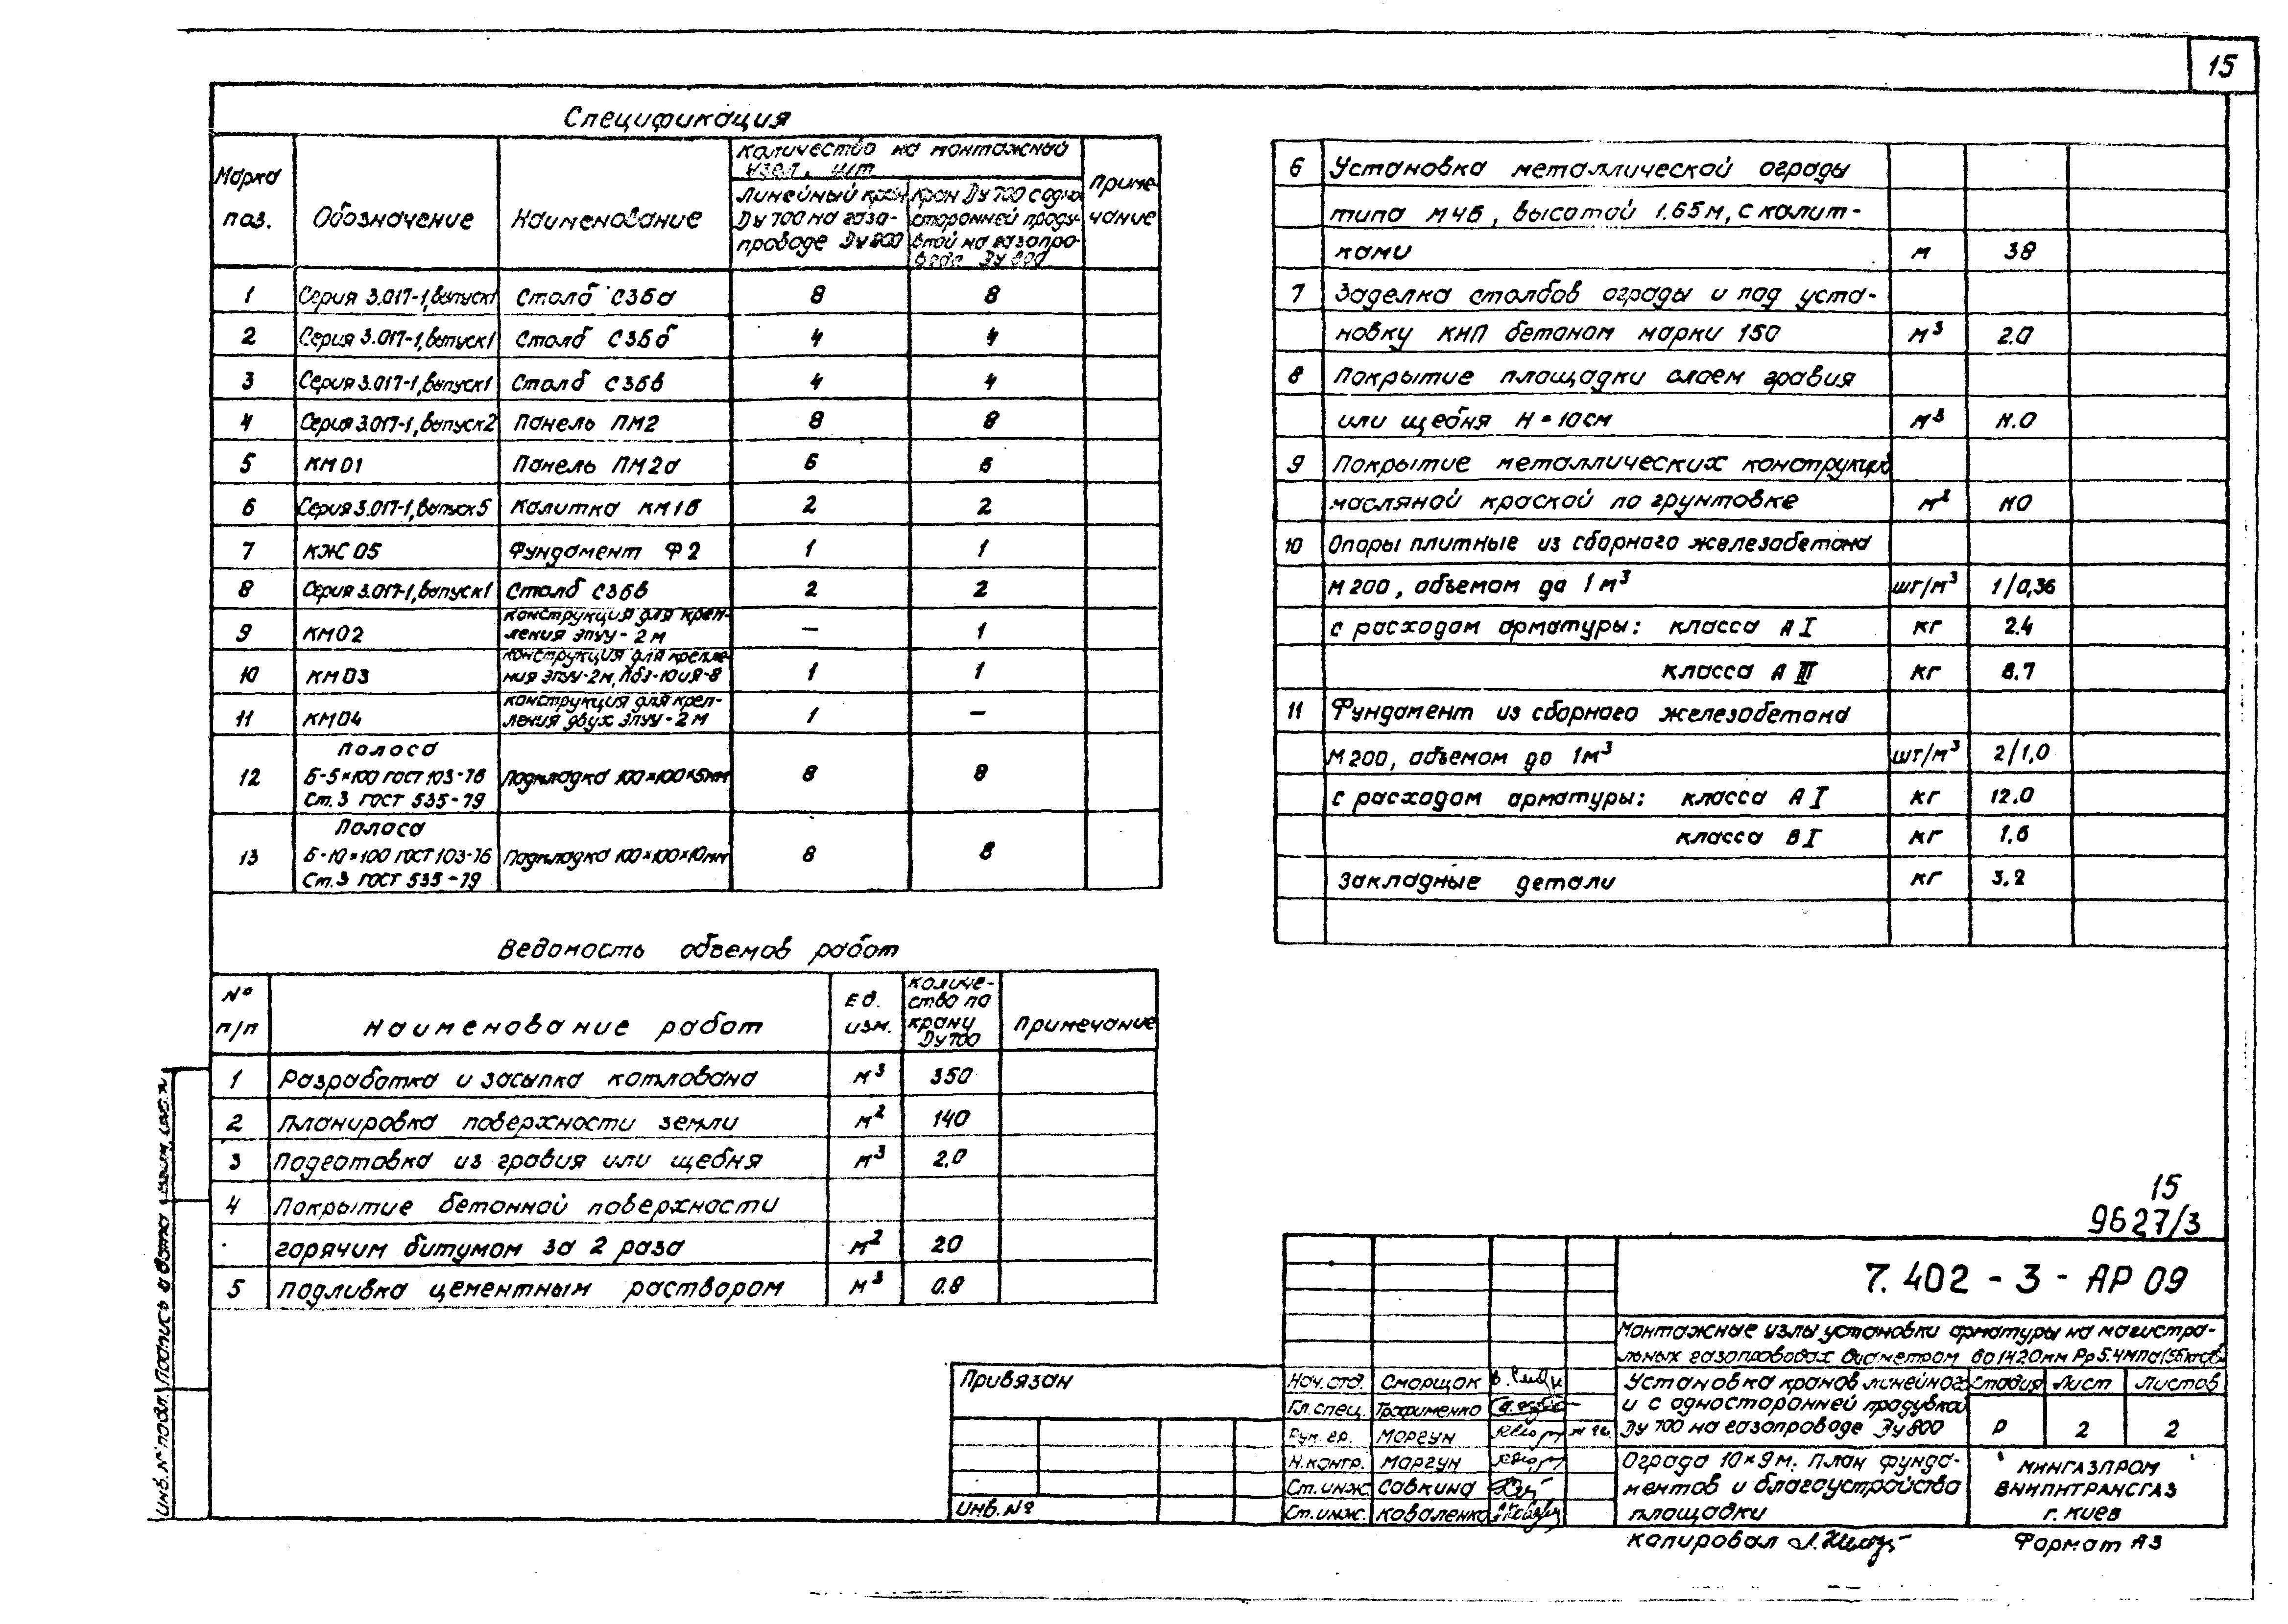 15
Спецификация
Марка поз. | Обозначение | Наименование | Количество на монтажный узел, шт | Приме-чание
Линейный кран Ду 700 на газо-проводе Ду 800 | Кран Ду 700 с одно-сторонней проду-вкой на газопро-воде Ду 800
1 | Серия 3.017-1, выпуск 1 | Столб С36а | 8 | 8
2 | Серия 3.017-1, выпуск 1 | Столб С36б | 4 | 4
3 | Серия 3.017-1, выпуск 1 | Столб С36в | 4 | 4
4 | Серия 3.017-1, выпуск 2 | Панель ПМ2 | 8 | 8
5 | КМ01 | Панель ПМ2а | 6 | 6
6 | Серия 3.017-1, выпуск 5 | Калитка КМ1б | 2 | 2
7 | КЖ05 | Фундамент Ф2 | 1 | 1
8 | Серия 3.017-1, выпуск 1 | Столб С36в | 2 | 2
9 | КМ02 | Конструкция для креп-ления ЭПУУ-2м | – | 1
10 | КМ03 | Конструкция для крепле-ния ЭПУУ-2м, | 1 | 1
11 | КМ04 | Конструкция для креп-ления двух ЭПУУ-2м | 1 | –
12 | Полоса Б-5×100 ГОСТ 103-76 Ст.3 ГОСТ 535-79 | Подкладка 100×100×5мм | 8 | 8
13 | Полоса Б-10×100 ГОСТ 103-76 Ст.3 ГОСТ 535-79 | Подкладка 100×100×10мм | 8 | 8
Ведомость объемов работ
№ п/п | Наименование работ | Ед. изм. | Количе-ство по крану Ду 700 | Примечание
1 | Разработка и засыпка котлована | м³ | 350
2 | Планировка поверхности земли | м² | 140
3 | Подготовка из гравия или щебня | м³ | 2.0
4 | Покрытие бетонной поверхности
горячим битумом за 2 раза | м² | 20
5 | Подливка цементным раствором | м³ | 0.8
6 | Установка металлической ограды
типа М4б, высотой 1.65м, с калит-
ками | м | 38
7 | Заделка столбов ограды и под уста-
новку КИП бетоном марки 150 | м³ | 2.0
8 | Покрытие площадки слоем гравия
или щебня Н=10см | м³ | 
9 | Покрытие металлических конструкций
масляной краской по грунтовке | м² | 
10 | Опоры плитные из сборного железобетона
М200, объемом до 1м³ | шт/м³ | 1/0,36
с расходом арматуры: класса АI | кг | 2.4
класса АIII | кг | 8.7
11 | Фундамент из сборного железобетона
М200, объемом до 1м³ | шт/м³ | 2/1,0
с расходом арматуры: класса АI | кг | 12.0
класса ВI | кг | 1.6
Закладные детали | кг | 3.2
15
9627/3
7.402-3-АР09
Монтажные узлы установки арматуры на магистра-
льных газопроводах диаметром до 1420мм Рр 5.4МПа
Установка кранов линейного
и с односторонней продувкой
Ду 700 на газопроводе Ду 800
Стадия | Лист | Листов
Р | 2 | 2
Ограда 10×9м. План фунда-
ментов и благоустройства
площадки
МИНГАЗПРОМ
ВНИПИТРАНСГАЗ
г. Киев
Нач. отд. | Сморщок
Гл. спец. | Трофименко
Рук. гр. | Моргун
Н. контр. | Моргун
Ст. инж. | Савкина
Ст. инж. | Коваленко
Привязан
Инв. №
Копировал
Формат А3
Инв. № подл. | Подпись и дата | Взам. инв. №